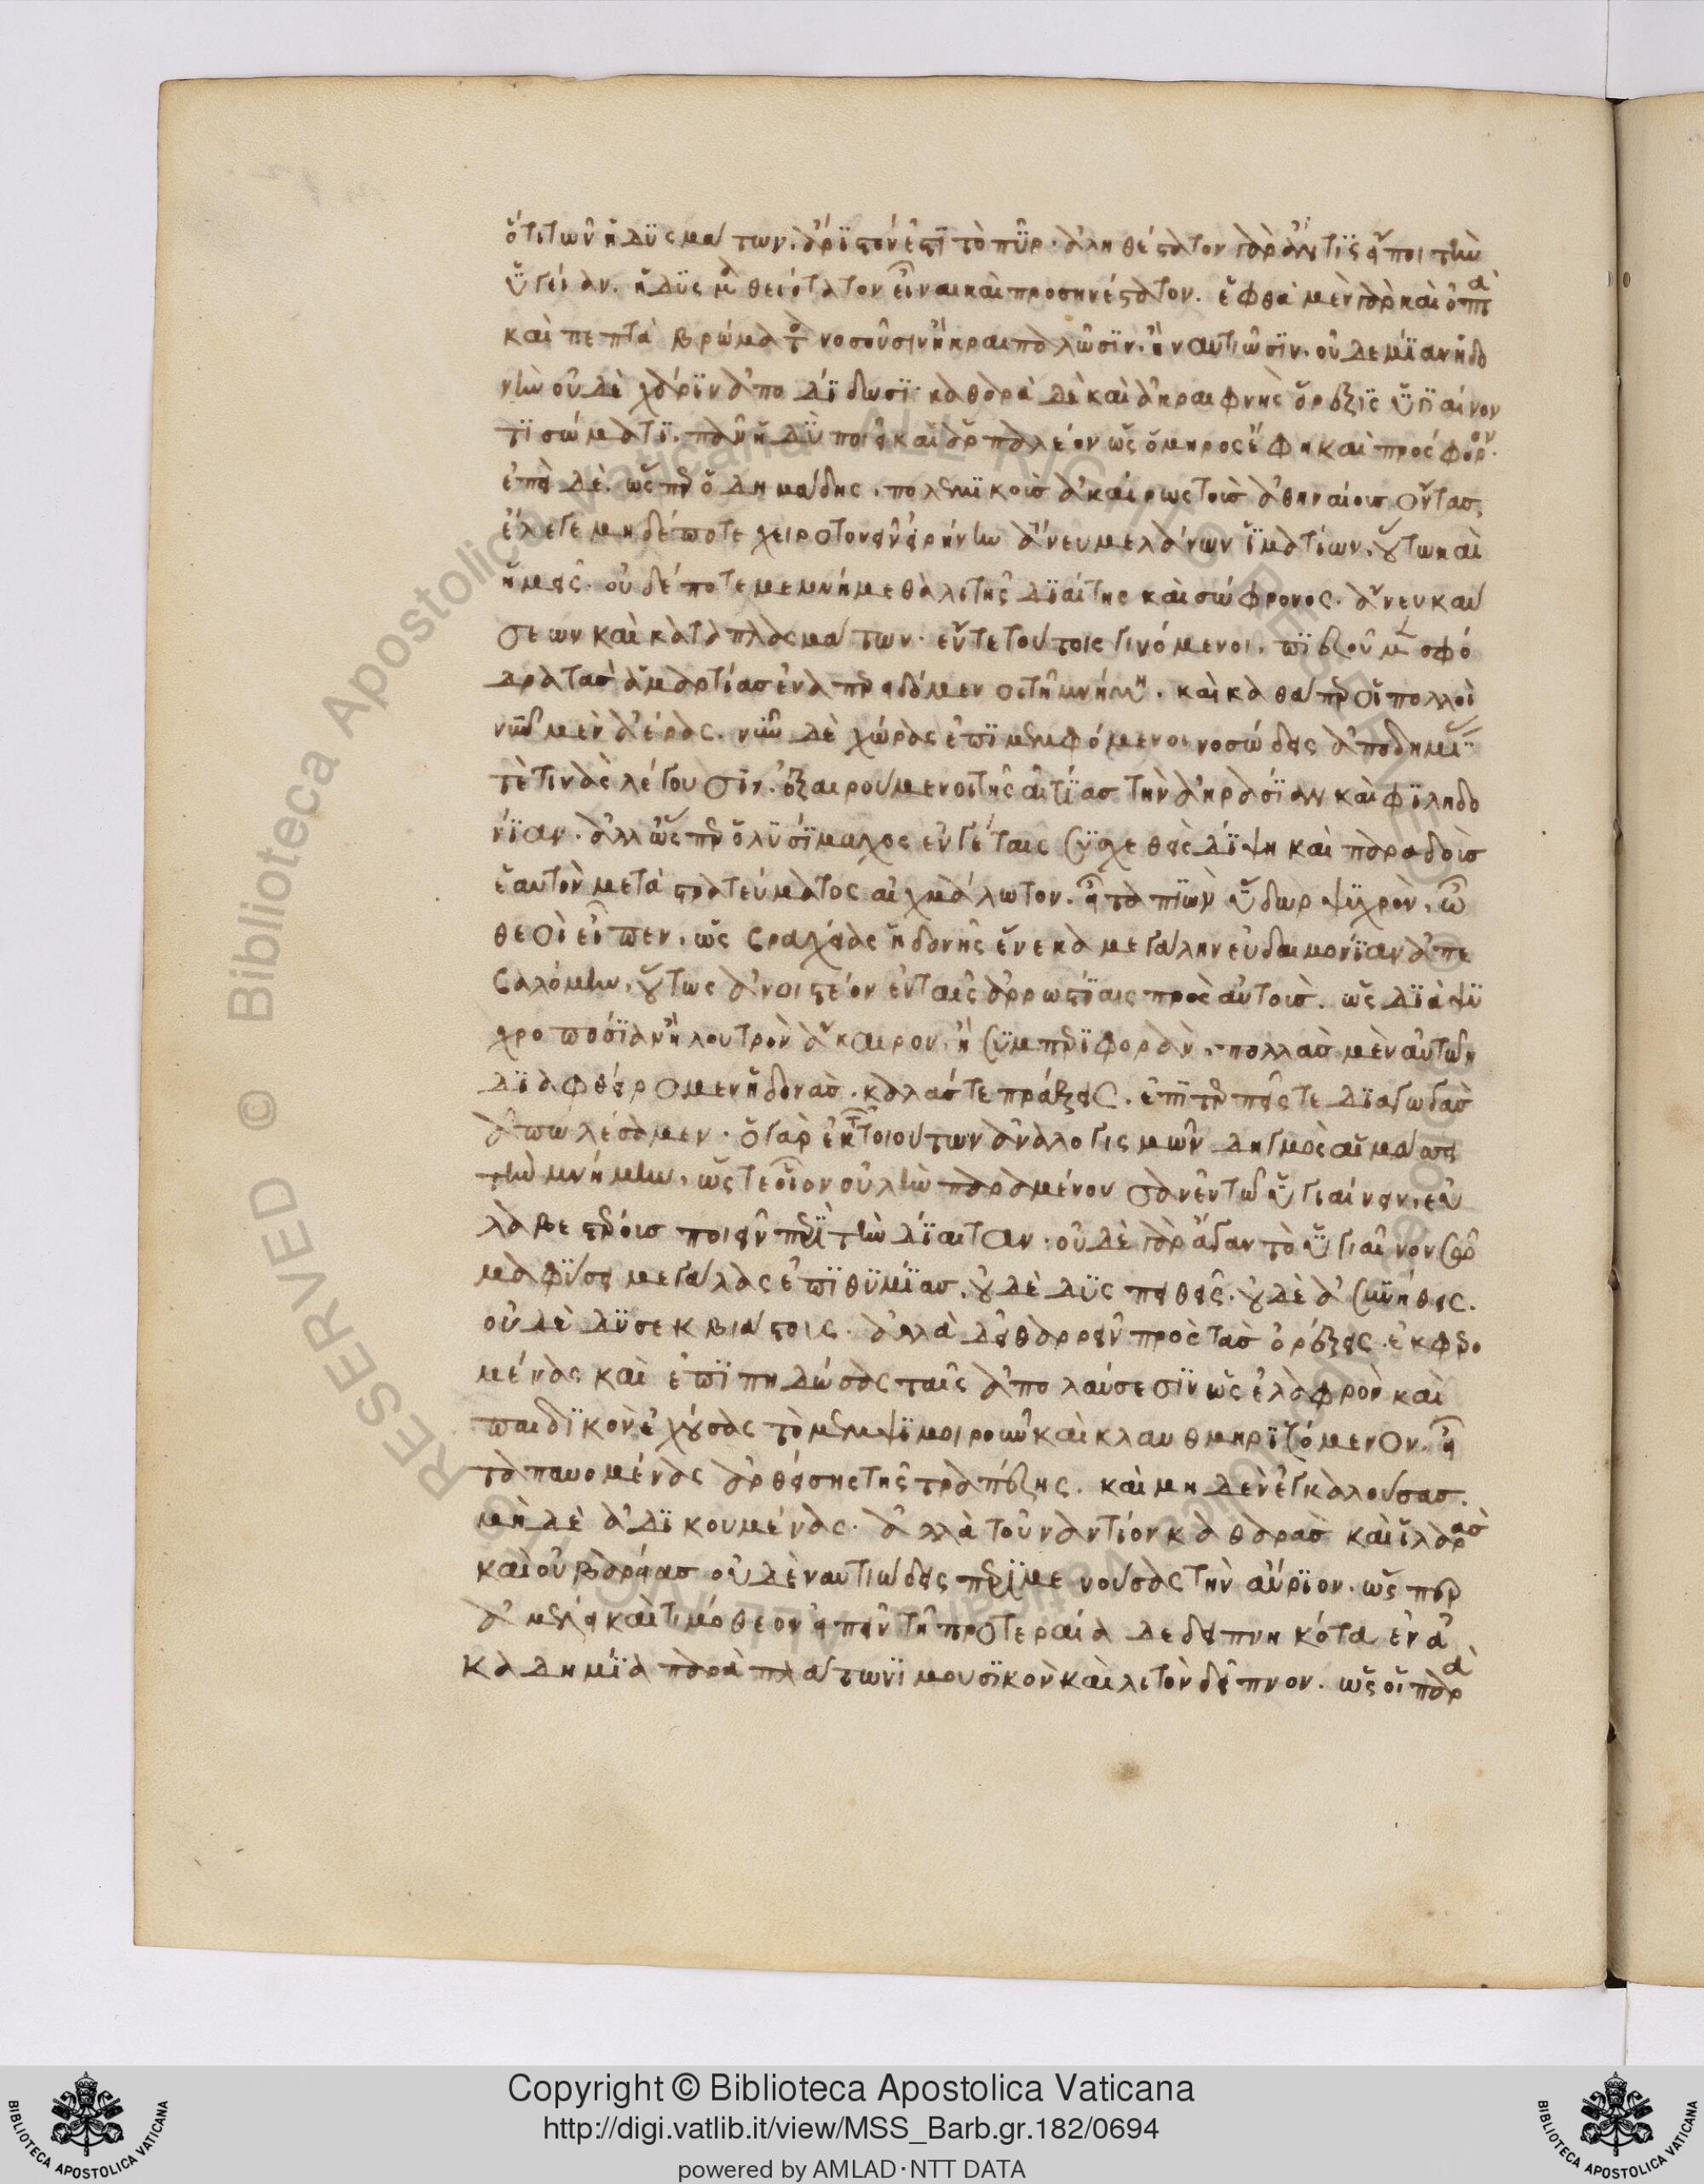 ὅτι τῶν ἡδυσμάτων ἄριστόν ἐστι τὸ πῦρ. ἀληθέστατον γὰρ ἄν τις εἴποι τὴν
ὑγείαν. ἥδυσμα θειότατον εἶναι καὶ προσηνέστατον. ἑφθὰ μὲν γὰρ καὶ ὀπτὰ
καὶ πεπτὰ βρώματα νοσοῦσιν ἢ κραιπαλῶσιν. ἢ ναυτιῶσιν. οὐδεμίαν ἡδο
νὴν οὐδὲ χάριν ἀποδίδωσι· καθαρὰ δὲ καὶ ἀκραιφνὴς ὄρεξις ὑγιαίνον
τι σώματι. πᾶν ἡδὺ ποιεῖ καὶ ἁρπαλέον ὡς ὅμηρος ἔφη καὶ πρόσφορον.
ἐπεὶ δὲ. ὥσπερ ὁ δημάδης. πολεμικοὺς ἀκαίρως τοὺς ἀθηναίους ὄντας
ἔλεγε μηδέποτε χειροτονεῖν εἰρήνην ἄνευ μελάνων ἱματίων. οὕτω καὶ
ἡμεῖς. οὐδέποτε μεμνήμεθα λιτῆς διαίτης καὶ σώφρονος. ἄνευ καύ
σεων καὶ καταπλασμάτων. ἔν τε τούτοις γινόμενοι. πιεζοῦμεν σφό
δρα τὰς ἁμαρτίας ἐναπερειδόμενοι τῇ μνήμῃ. καὶ καθάπερ οἱ πολλοὶ
νῦν μὲν ἀέρας. νῦν δὲ χώρας ἐπιμεμφόμενοι νοσώδεις ἀποδημίας
τε τινὰς λέγουσιν. ἐξαιρούμενοι τῆς αἰτίας τὴν ἀκρασίαν καὶ φιληδο
νίαν. ἀλλ' ὥσπερ ὁ λυσίμαχος ἐν γέταις συσχεθεὶς δίψῃ καὶ παραδοὺς
ἑαυτὸν μετὰ στρατεύματος αἰχμάλωτον. εἶτα πιὼν ὕδωρ ψυχρὸν. ὦ
θεοὶ εἶπεν. ὡς βραχείας ἡδονῆς ἕνεκα μεγάλην εὐδαιμονίαν ἀπε
βαλόμην. οὕτως ἀνοιστέον ἐν ταῖς ἀρρωστίαις πρὸς αὑτοὺς. ὡς διὰ ψυ
χροποσίαν ἢ λουτρὸν ἄκαιρον. ἢ συμπεριφορὰν. πολλὰς μὲν αὑτῶν
διαφθείρομεν ἡδονὰς. καλάς τε πράξεις. ἐπιτερπεῖς τε διαγωγὰς
ἀπωλέσαμεν. ὁ γὰρ ἐκ τῶν τοιούτων ἀναλογισμῶν δηγμὸς αἱμάσσει
τὴν μνήμην. ὥστε οἷον οὐλὴν παραμένουσαν ἐν τῷ ὑγιαίνειν. εὐ
λαβεστέρους ποιεῖν περὶ τὴν δίαιταν. οὐδὲ γὰρ ἄγαν τὸ ὑγιαῖνον σῶ
μα φύσει μεγάλας ἐπιθυμίας. οὐδὲ δυσπειθεῖς. οὐδὲ ἀσυνήθεις.
οὐδὲ δυσεκβιάστοις. ἀλλὰ δεῖ θαρρεῖν πρὸς τὰς ὀρέξεις. ἐκφερο
μένας καὶ ἐπιπηδώσας ταῖς ἀπολαύσεσιν ὡς ἐλαφρὸν καὶ
παιδικὸν ἐχούσας τὸ μεμψιμοιροῦν καὶ κλαυθμηριζόμενον. εἶ
τα παυομένας ἀρθείσης τῆς τραπέζης. καὶ μηδὲν ἐγκαλούσας.
μηδὲ ἀδικουμένας. ἀλλὰ τοὐναντίον καθαρὰς καὶ ἱλαρὰς
καὶ οὐ βαρείας οὐδὲ ναυτιώδεις περιμενούσας τὴν αὔριον. ὥσπερ
ἀμέλει καὶ τιμόθεον εἰπεῖν τῇ προτεραίᾳ δεδειπνηκότα ἐν ἀ
καδημίᾳ παρὰ πλάτωνι μουσικὸν καὶ λιτὸν δεῖπνον. ὡς οἱ παρὰ
Copyright © Biblioteca Apostolica Vaticana
http://digi.vatlib.it/view/MSS_Barb.gr.182/0694
powered by AMLAD·NTT DATA